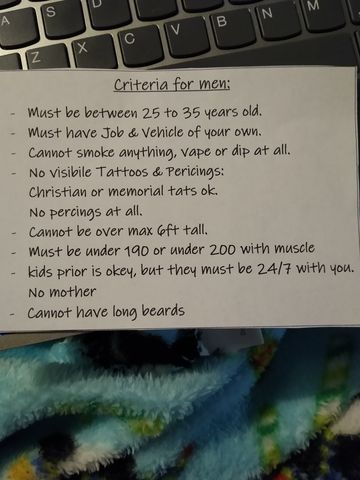 A S D F G H J
Z X C V B N M
Criteria for men:
- Must be between 25 to 35 years old.
- Must have Job & Vehicle of your own.
- Cannot smoke anything, vape or dip at all.
- No visibile Tattoos & Pericings:
Christian or memorial tats ok.
No percings at all.
- Cannot be over max 6ft tall.
- Must be under 190 or under 200 with muscle
- kids prior is okey, but they must be 24/7 with you.
No mother
- Cannot have long beards